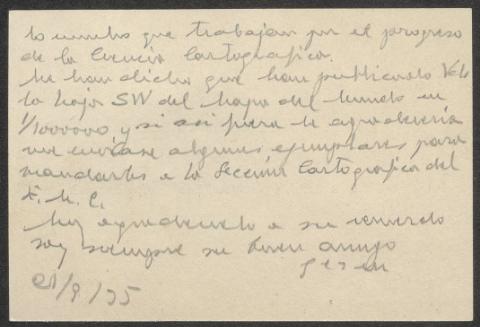 lo mucho que trabajan por el progreso
de la Ciencia Cartografica.
Me han dicho que han publicado Vds
la hoja SW del mapa del mundo en
1/1000000 y si asi fuera le agradeceria
me enviase algunos ejemplares para
mandarlos a la Sección Cartografica del
E. M. C.
Muy agradecido a su recuerdo
soy siempre su buen amigo
21/9/35